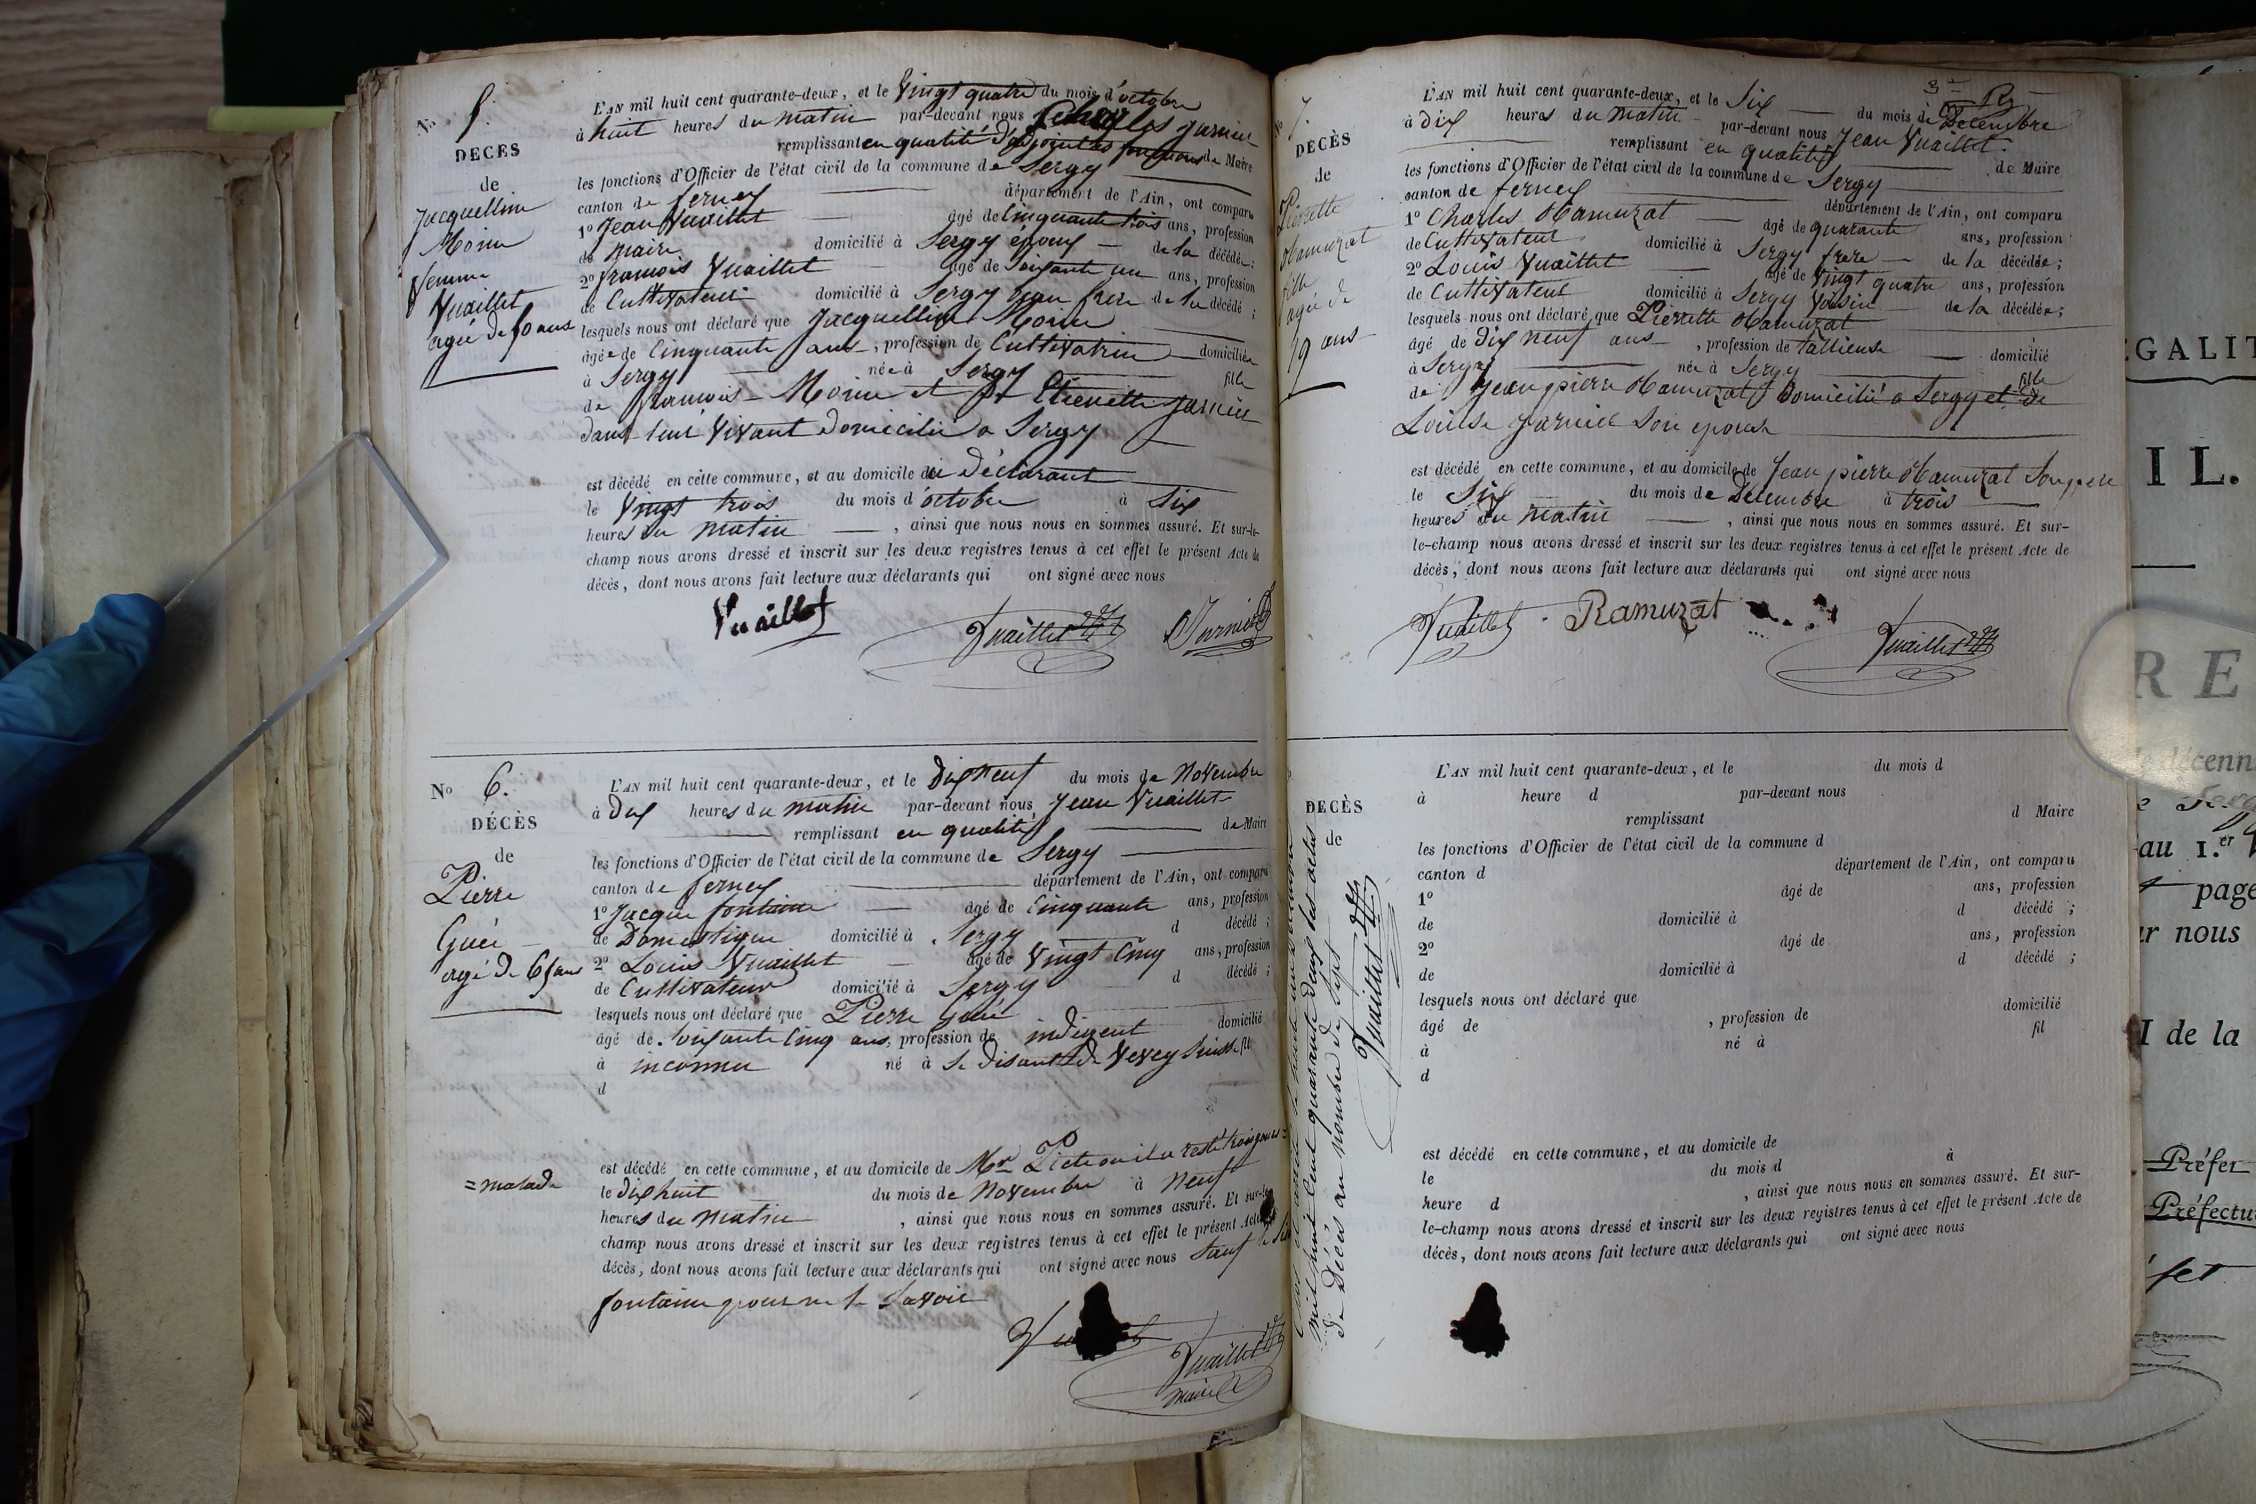 N° 5.
DÉCÈS
de
Jacqueline
Moine
femme
Vuaillet
agée de 50 ans
L'AN mil huit cent quarante-deux, et le Vingt quatre du mois d'octobre
à huit heures du matin par-devant nous Charles Jarnier
remplissant en qualité d'adjoint les fonctions de Maire
les fonctions d'Officier de l'état civil de la commune de Sergy
canton de ferney département de l'Ain, ont comparu
1° Jean Vuaillet âgé de Cinquante trois ans, profession
de maire domicilié à Sergy époux de la décédée;
2° francois Vuaillet âgé de Soixante un ans, profession
de Cultivateur domicilié à Sergy beau frere de la décédé;
lesquels nous ont déclaré que Jacqueline Moine
âgée de Cinquante ans, profession de Cultivatrice domiciliée
à Sergy née à Sergy fille
de francois Moine et Etienette Jarnier
dans leur Vivant domicilié a Sergy
est décédé en cette commune, et au domicile du Déclarant
le Vingt trois du mois d'octobre à Six
heures du matin, ainsi que nous nous en sommes assuré. Et sur-le-
champ nous avons dressé et inscrit sur les deux registres tenus à cet effet le présent Acte de
décès, dont nous avons fait lecture aux déclarants qui ont signé avec nous
Vuaillet Vuaillet Jarnier
N° 6.
DÉCÈS
de
Pierre
Guéi
agé de 65 ans
L'AN mil huit cent quarante-deux, et le Dix neuf du mois de Novembre
à Dix heures du matin par-devant nous Jean Vuaillet
remplissant en qualité de Maire
les fonctions d'Officier de l'état civil de la commune de Sergy
canton de ferney département de l'Ain, ont comparu
1° Jacque fontaine âgé de Cinquante ans, profession
de Domestique domicilié à Sergy d décédé;
2° Louis Vuaillet âgé de Vingt Cinq ans, profession
de Cultivateur domicilié à Sergy d décédé;
lesquels nous ont déclaré que Pierre Guéi
âgé de Soixante Cinq ans, profession de indigent domicilié
à inconnu né à Se disant de Vevey Suisse fil
d
est décédé en cette commune, et au domicile de Mr Picte ou il a resté trois jours =
= malade
le Dix huit du mois de Novembre à Neuf
heures du Matin, ainsi que nous nous en sommes assuré. Et sur-le-
champ nous avons dressé et inscrit sur les deux registres tenus à cet effet le présent Acte
décès, dont nous avons fait lecture aux déclarants qui ont signé avec nous Sauf le dit
fontaine pour ne le Savoir
Vuaillet
maire
7.
DÉCÈS
de
Pierrette
Ramuzat
fille
agée de
19 ans
L'AN mil huit cent quarante-deux, et le Six du mois de Decembre
à dix heures du matin par-devant nous Jean Vuaillet
remplissant en qualité de Maire
les fonctions d'Officier de l'état civil de la commune de Sergy
canton de ferney département de l'Ain, ont comparu
1° Charles Ramuzat âgé de quarante ans, profession
de Cultivateur domicilié à Sergy frere de la décédée;
2° Louis Vuaillet âgé de Vingt quatre ans, profession
de Cultivateur domicilié à Sergy Voisin de la décédée;
lesquels nous ont déclaré que Pierrette Ramuzat
âgé de Dix neuf ans, profession de tallieuse domicilié
à Sergy née à Sergy fille
de Jean pierre Ramuzat Domicilié a Sergy et de
Louise Jarnier Son epouse
est décédé en cette commune, et au domicile de Jean pierre Ramuzat Son pere
le Six du mois de Decembre à trois
heures du matin, ainsi que nous nous en sommes assuré. Et sur-
le-champ nous avons dressé et inscrit sur les deux registres tenus à cet effet le présent Acte de
décès, dont nous avons fait lecture aux déclarants qui ont signé avec nous
Vuaillet Ramuzat Vuaillet
mil huit cent quarante deux les actes
de Décès au nombre de Sept
Vuaillet
DÉCÈS
de
L'AN mil huit cent quarante-deux, et le du mois d
à heure d par-devant nous
remplissant d Maire
les fonctions d'Officier de l'état civil de la commune d
canton d département de l'Ain, ont comparu
1° âgé de ans, profession
de domicilié à d décédé;
2° âgé de ans, profession
de domicilié à d décédé;
lesquels nous ont déclaré que
âgé de , profession de domicilié
à né à fil
d
est décédé en cette commune, et au domicile de
le du mois d à
heure d , ainsi que nous nous en sommes assuré. Et sur-
le-champ nous avons dressé et inscrit sur les deux registres tenus à cet effet le présent Acte de
décès, dont nous avons fait lecture aux déclarants qui ont signé avec nous
EGALIT
IL.
RE
décenn
au 1.er
page
nous
I de la
Préfet
Préfectu